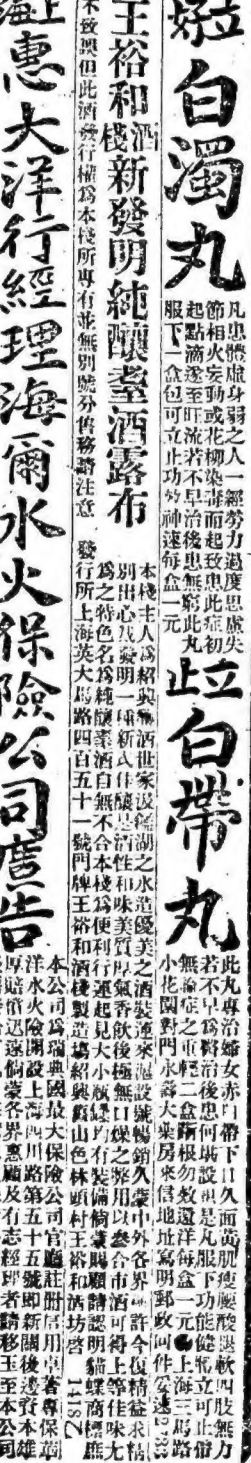 立止白濁丸
凡患體虛身弱之人一經勞力過度思慮失
節相火妄動或花柳染毒而起致患此症初
起點滴遂至旺流若不早治後患無窮此丸
服下一盒包可立止功效神速每盒一元
立止白帶丸
此丸專治婦女赤白帶下日久面黃肌瘦腰酸腿軟四肢無力
若不早爲醫治後患何堪設想是丸服下功能健體立可止帶
無論症之重輕二盒斷根勿教還洋每盒一元 上海三馬路
小花園對門水壽大藥房來信地址寫明郵政回件妥速
王裕和酒棧新發明純釀臺酒露布
本棧主人爲紹興釀酒世家汲鑑湖之水造優美之酒裝運來滬設號暢銷久蒙中外各界稱許今復精益求精
別出心裁發明一種新式佳釀酒性和味美質厚氣香飲後極無口燥之弊用以叁合市酒可得上等佳味尤
爲之特色名爲純釀臺酒自無不合本棧爲便利行運起見大小瓶罎均有裝備倘蒙賜顧請認明貓蝶商標庶
不致誤但此酒發行權爲本棧所專有並無別處分售務請注意
發行所上海英大馬路四百五十一號門牌王裕和酒棧製造場紹興鑑山色林頭村王裕和酒坊啓 1418乙
上海惠大洋行經理海爾水火保險公司廣告
本公司爲瑞典國最大保險公司官廳註册信用卓著專保華
洋水火險開設上海四川路第五十五號即新關後邊資本雄
厚賠償迅速倘蒙各界惠顧及有志經理者請移玉至本公司